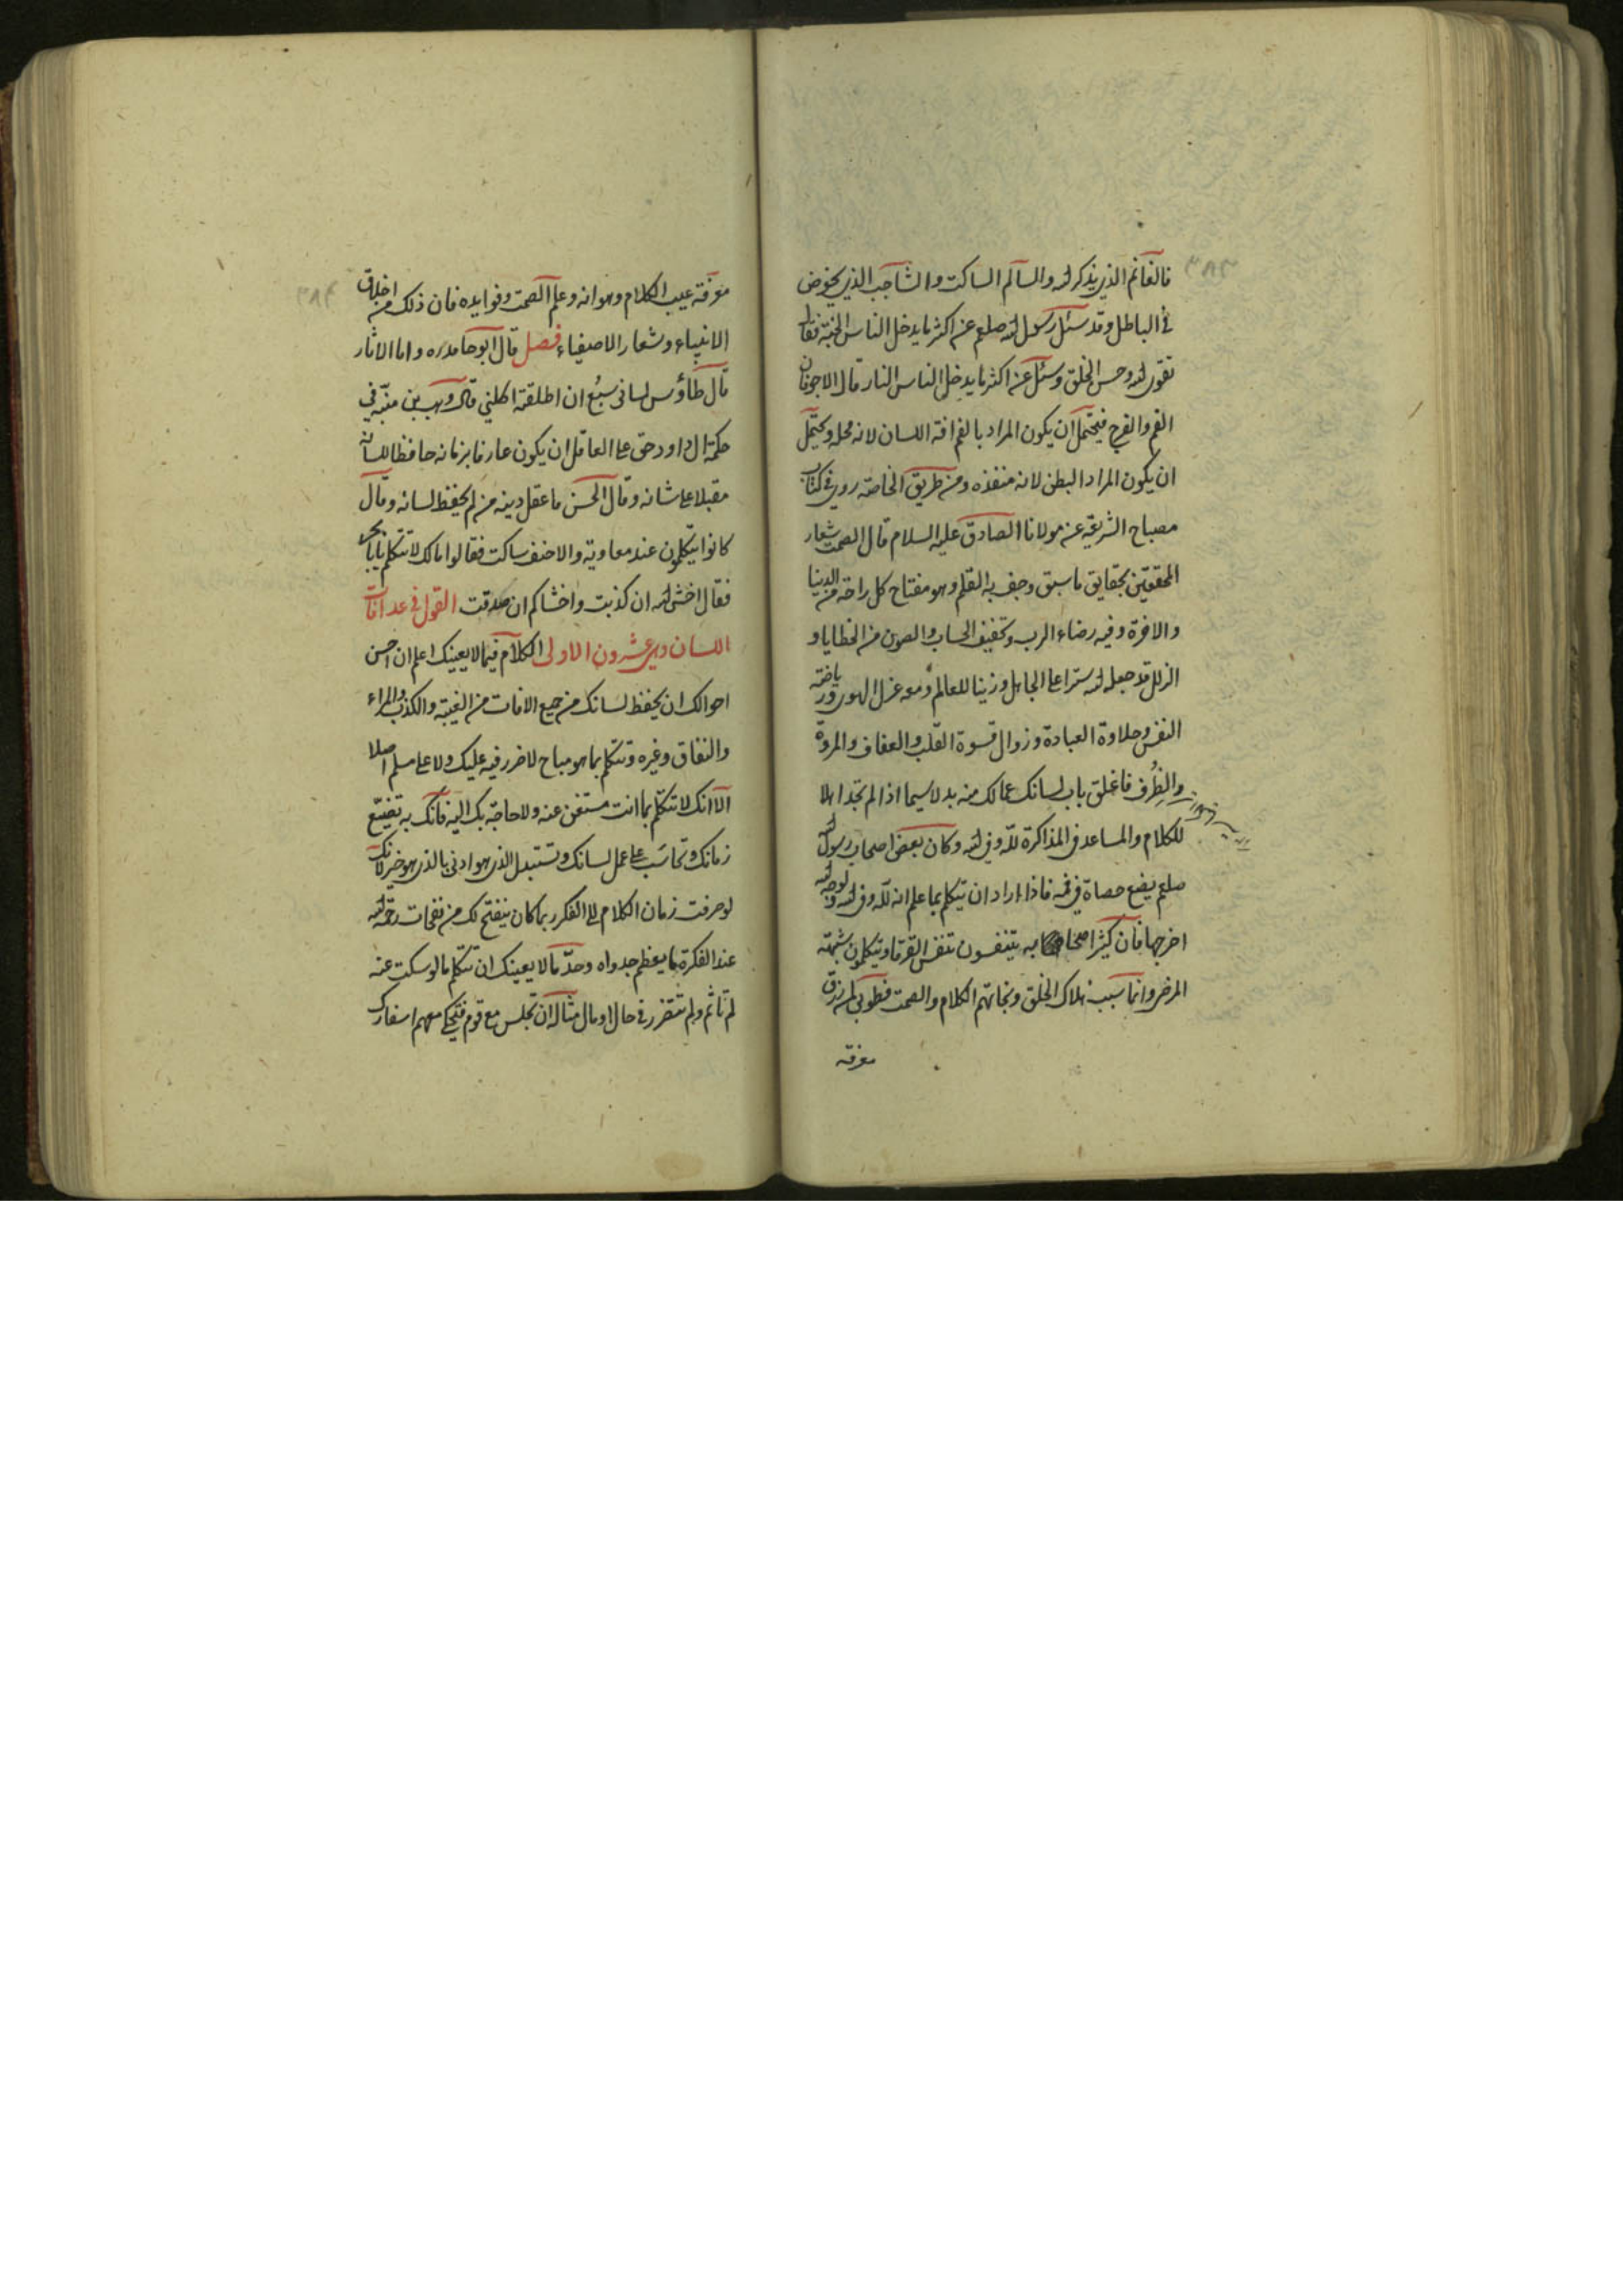 ٣٨٣
فالغانم الذي يذكر الله والسالم الساكت والشاجب الذي يخوض
في الباطل وقد سئل رسول الله صلعم عن اكثر ما يدخل الناس الجنة فقال
تقوى الله وحسن الخلق وسئل عن اكثر ما يدخل الناس النار قال الاجوفان
الفم والفرج فيحتمل ان يكون المراد بالفم افة اللسان لانه محله ويحتمل
ان يكون المراد البطن لانه منفذه ومن طريق الخاصة روي في كتاب
مصباح الشريعة عن مولانا الصادق عليه السلام قال الصمت شعار
المحققين بحقايق ما سبق وجف به القلم وهو مفتاح كل راحة من الدنيا
والاخرة وفيه رضاء الرب وتخفيف الحساب والصون من الخطايا و
الزلل قد جعله الله سترا على الجاهل وزينا للعالم ومعه عزل الهوى ورياضة
النفس وحلاوة العبادة وزوال قسوة القلب والعفاف والمروة
والظرف فاغلق باب لسانك عما لك منه بد لا سيما اذا لم تجد اهلا
للكلام والمساعد في المذاكرة لله وفي الله وكان بعض اصحاب رسول الله
صلعم يضع حصاة في فمه فاذا اراد ان يتكلم بما علم انه لله وفي الله ولوجه الله
اخرجها فان كثيرا من الصحابه يتنفسون تنفس الغرقا ويتكلمون شبه
المرضى وانما سبب هلاك الخلق ونجاتهم الكلام والصمت فطوبى لمن رزق
معرفة
٣٨٤
معرفة عيب الكلام وهوانه وعلم الصمت وفوايده فان ذلك من اخلاق
الانبياء وشعار الاصفياء فصل قال ابو حامد ره واما الاثار
قال طاؤس لساني سبع ان اطلقته اكلني قال وهب بن منبه في
حكمة ال داود حق على العاقل ان يكون عارفا بزمانه حافظا للسانه
مقبلا على شانه وقال الحسن ما عقل دينه من لم يحفظ لسانه وقال
كانوا يتكلمون عند معاوية والاحنف ساكت فقالوا مالك لا تتكلم يا ابا بحر
فقال اخشى الله ان كذبت واخشاكم ان صدقت القول في عد افات
اللسان وهي عشرون الاولى الكلام فيما لا يعنيك اعلم ان احسن
احوالك ان يحفظ لسانك من جميع الافات من الغيبة والكذب والمراء
والنفاق وغيره وتتكلم بما هو مباح لا ضرر فيه عليك ولا على مسلم اصلا
الا انك لا تتكلم بما انت مستغن عنه ولا حاجة بك اليه فانك به تضيع
زمانك وتحاسب على عمل لسانك وتستبدل الذي هو ادنى بالذي هو خير لانك
لو صرفت زمان الكلام الى الفكر ربما كان ينفتح لك من نفحات رحمة الله
عند الفكرة ما يعظم جدواه وحد ما لا يعنيك ان تتكلم ما لو سكت عنه
لم تاثم ولم تتضرر في حال او مال مثاله ان تجلس مع قوم فتحكي معهم اسفارك